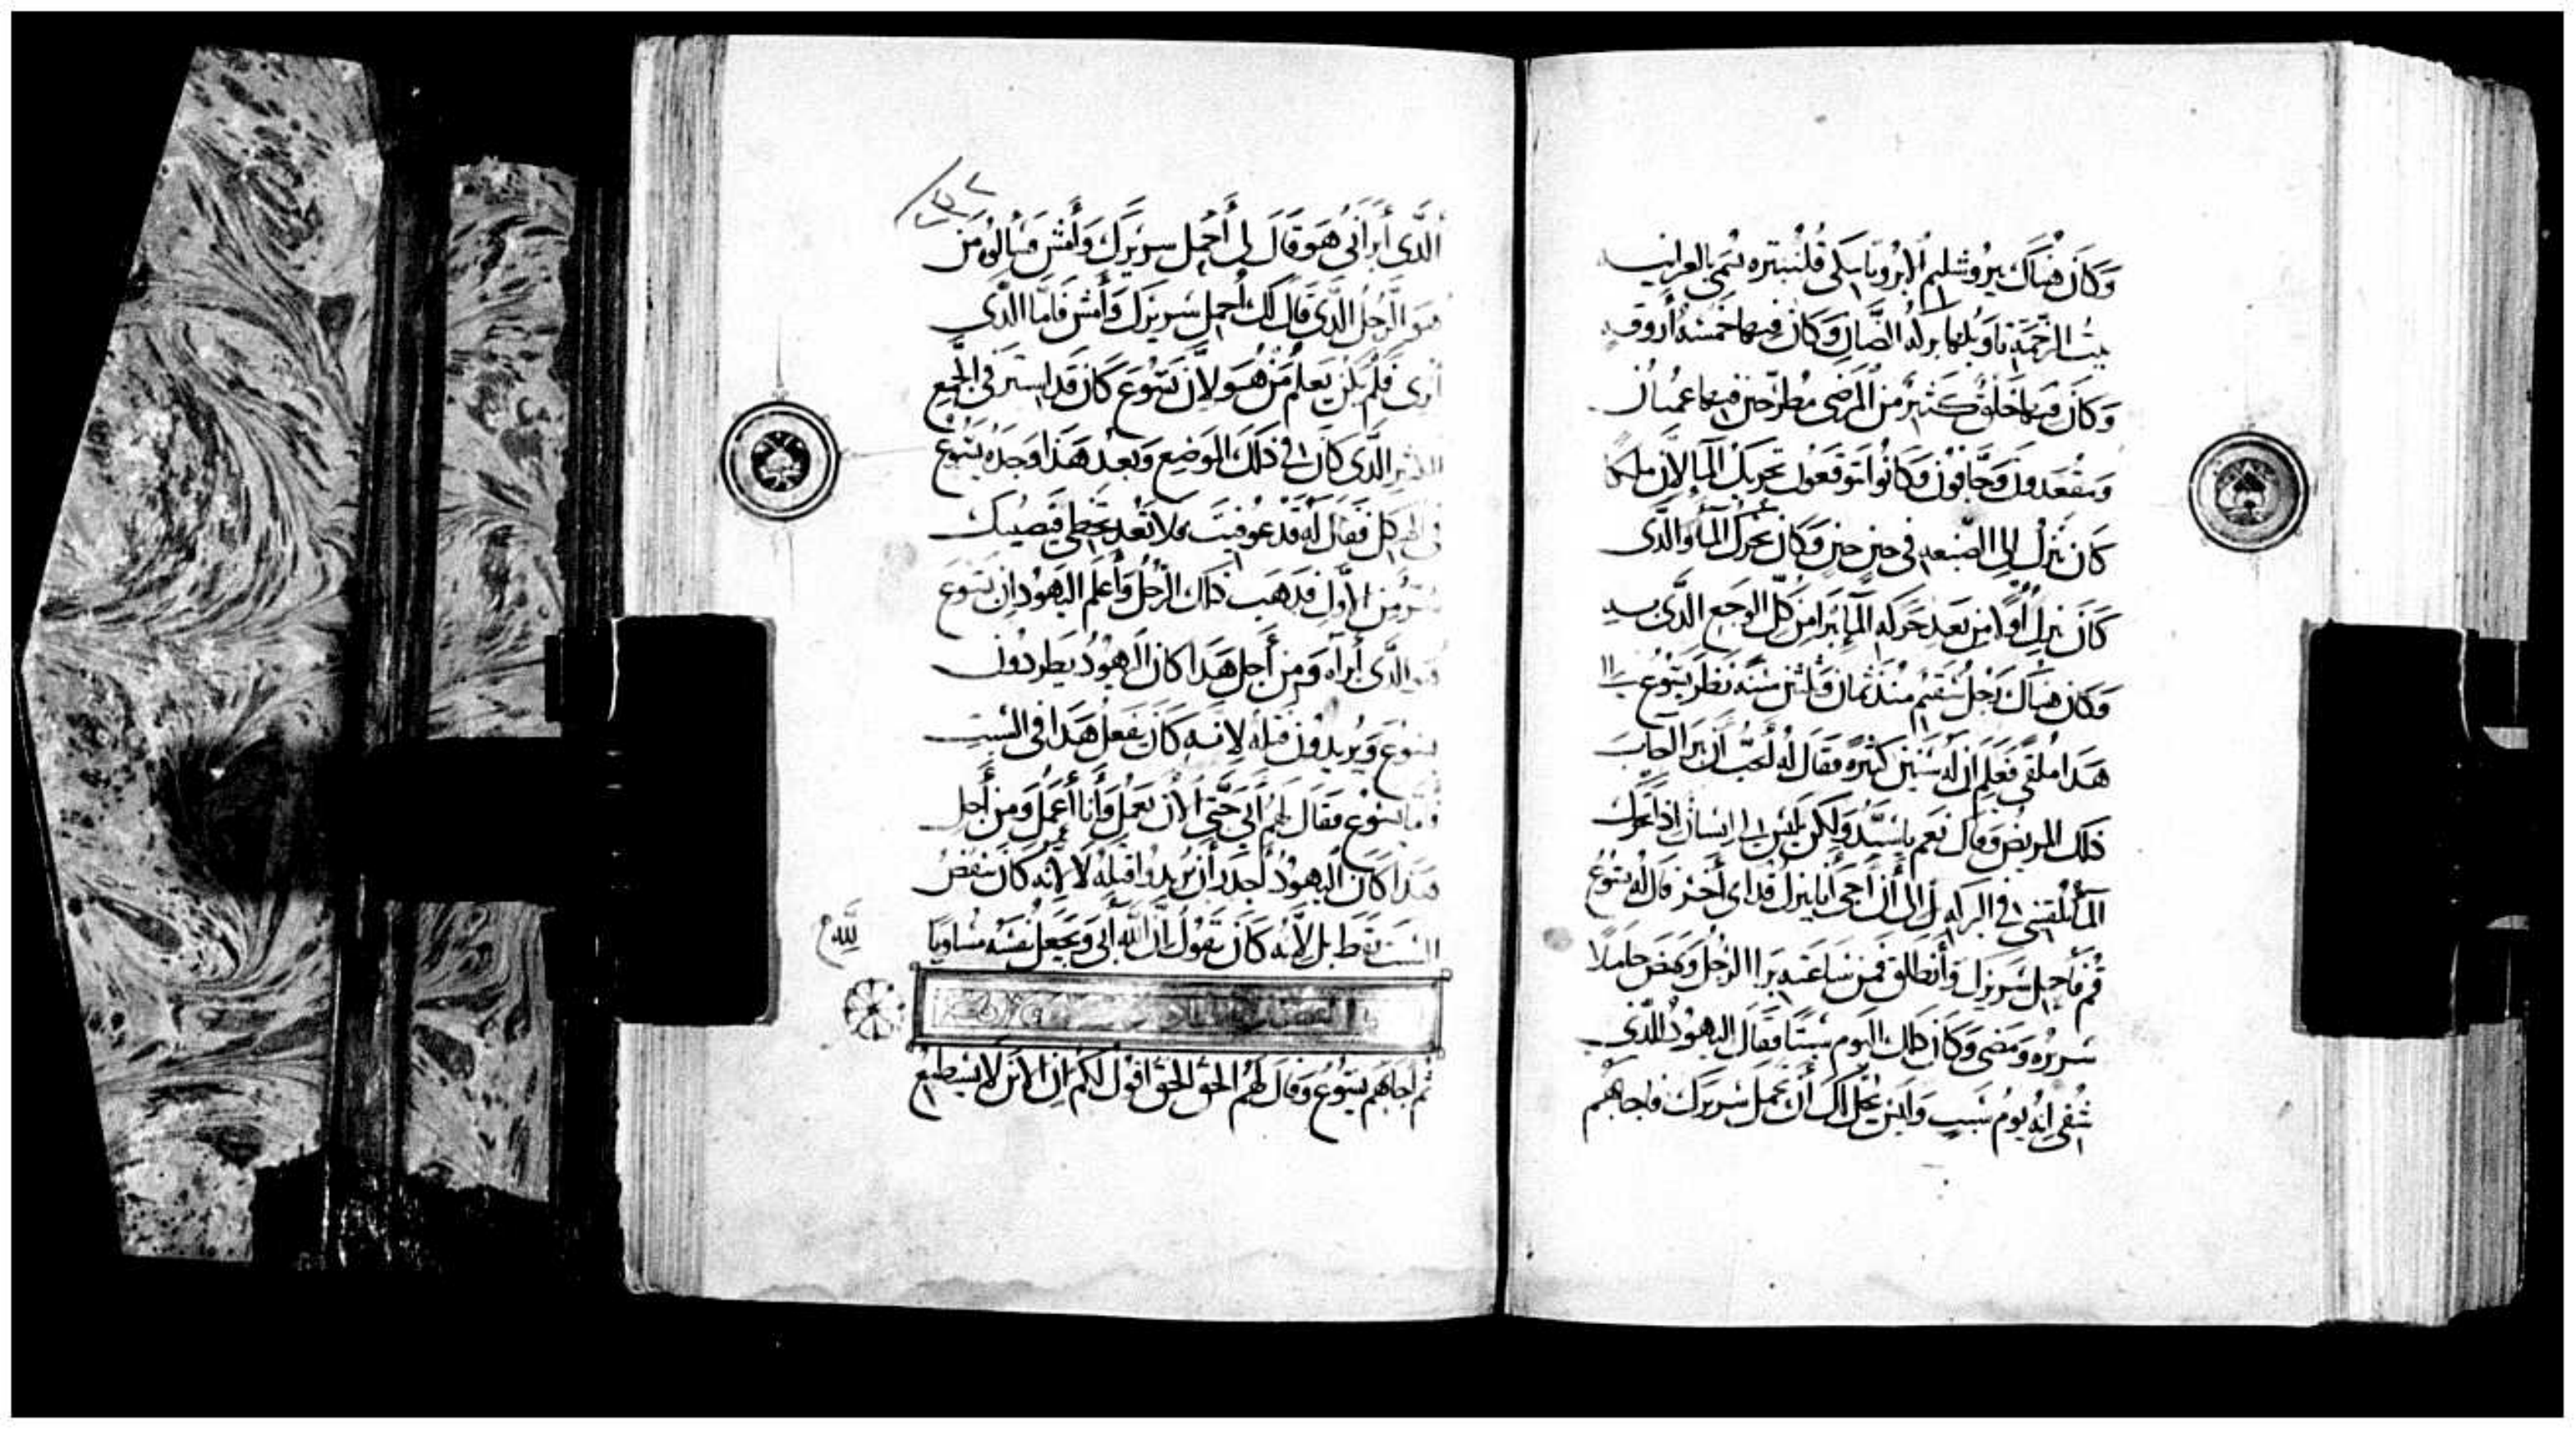 وَكَانَ هُنَاكَ بيرُوشليم الابرُوباطيكى قُلنبتره تُسَمى بالعبرانيه
بيتُ الرَّحْمَة تاويلها بركه الضَّان وَكَانَ فيها خمسَةُ أَروقه
وَكَانَ فيهَا خَلقٌ كَثيرٌ منَ المَرضَى مُطرحين فيها عُميان
وَمقعَدونَ وَجَافونَ وَكَانُوا يتوقعونَ تحريك المآ لاَنَّ ملكا
كَانَ ينزلُ الى الصبغه فى حين حين وَكانَ يحرّكُ المآ وَالَّذى
كَانَ ينزل أولا من بَعدِ حَركه المآ يَبرا من كلّ الوجع الَّذى به
وَكانَ هناكَ رَجل سَقيم منذ ثمان وَثلثين سَنَه نَظرَ يَسُوعُ الى
هَذا مُلقى فَعلمَ ان لَه سنين كثيره فقَالَ لَه أَتحبُّ أن تَبرا أجاب
ذلك المريض وَقال نَعم يا سَيّد وَلكن لَيسَ لى انسان اذا تحرك
المآ يُلقينى فى البركه بل الى أن أَجى أَنا ينزل قدامى أخر قال له يَسُوعُ
قُم فَأحمل سَريركَ وَأنطلق فمن سَاعَته بَرا الرَّجلُ وَنهضَ حَاملًا
سَريرُه وَمَضى وَكانَ ذلك اليوم سَبتًا فقَالَ اليهُودُ للَّذى
شُفى انه يومُ سَبت وَليسَ يحلّ لَكَ أَن تَحمل سَريرَك فاجابَهُم
الَّذى أَبرَأَنى هُوَ قَالَ لى أَحمل سَريرَكَ وَأمش فسَالُوه مَن
هُوَ الرَّجُل الَّذى قَالَ لَكَ أحمل سَريرَكَ وَأَمش فَامَّا الَّذى
بَرى فَلَم يكن يَعلَمُ مَن هُو لاَنَّ يَسُوعَ كَانَ قَد استترَ فى الجمع
الكثير الَّذى كانَ فى ذلك المَوضِع وَبعدَ هَذا وَجده يَسُوع
فى الهيكل فقالَ لَه قَد عُوفيتَ فلا تَعُد تخطى فيَصيبك
شرّ من الاول فذهبَ ذلك الرَّجُلُ وَأعلَم اليهُود ان يَسُوع
هوَ الَّذى أبرَأه وَمن أَجل هَذا كانَ اليهُودُ يطرُدون
يسُوع وَيُريدُونَ قتلَه لاَنه كَانَ يفعَلُ هَذا فى السَّبت
فامَّا يسُوع فقال لهُم أَبى حَتَّى الأنَ يَعمَل وَأَنا أَعمَل وَمن أَجل
هَذا كَانَ اليهُودُ أَجدَرَ أن يُريدُوا قتلَهُ لا لانه كانَ ينقضُ
السَّبت فقط بل لأنه كانَ يَقُولُ انَّ اللَّه أبى وَيجعَلُ نفسَه مساويا
لله
ثم أجابَهم يَسُوعُ وَقال لهُمُ الحَقَّ الحَقَّ اقول لكم ان الاِبنَ لا يستَطيعُ